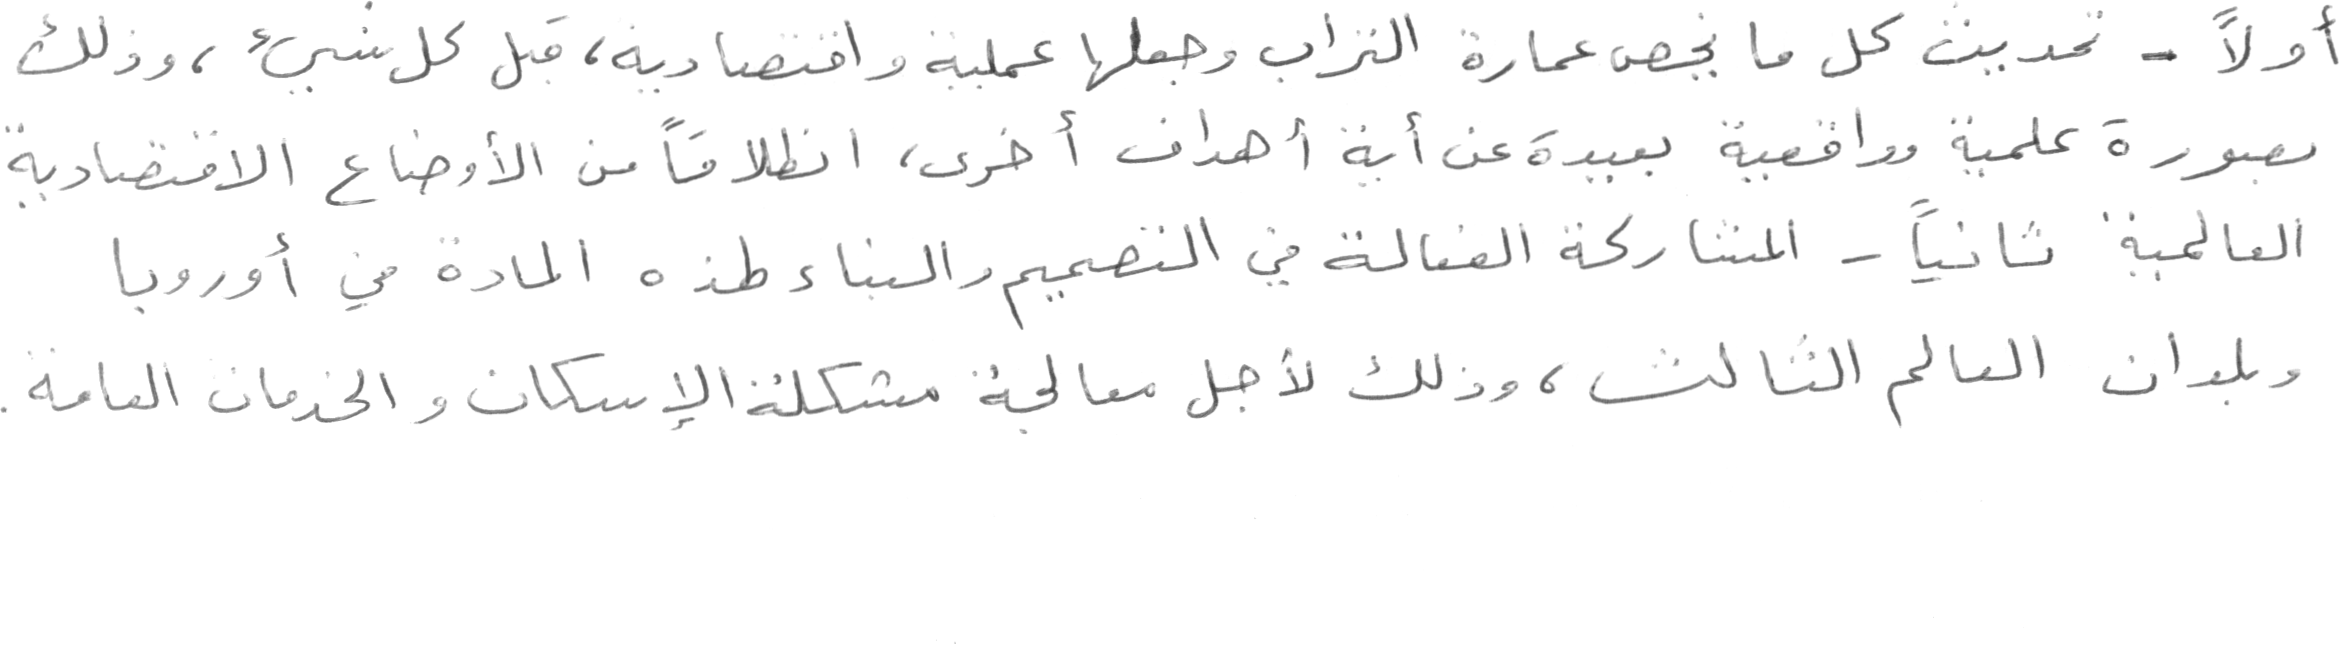 أولاً - تحديث كل ما يخص عمارة التراب وجعلها عملية واقتصادية، قبل كل شيء، وذلك
بصورة علمية وواقعية بعيدة عن أية أهداف أخرى، انطلاقاً من الأوضاع الاقتصادية
العالمية. ثانياً - المشاركة الفعالة في التصميم والبناء لهذه المادة في أوروبا
وبلدان العالم الثالث، وذلك لأجل معالجة مشكلة الإسكان والخدمات العامة.